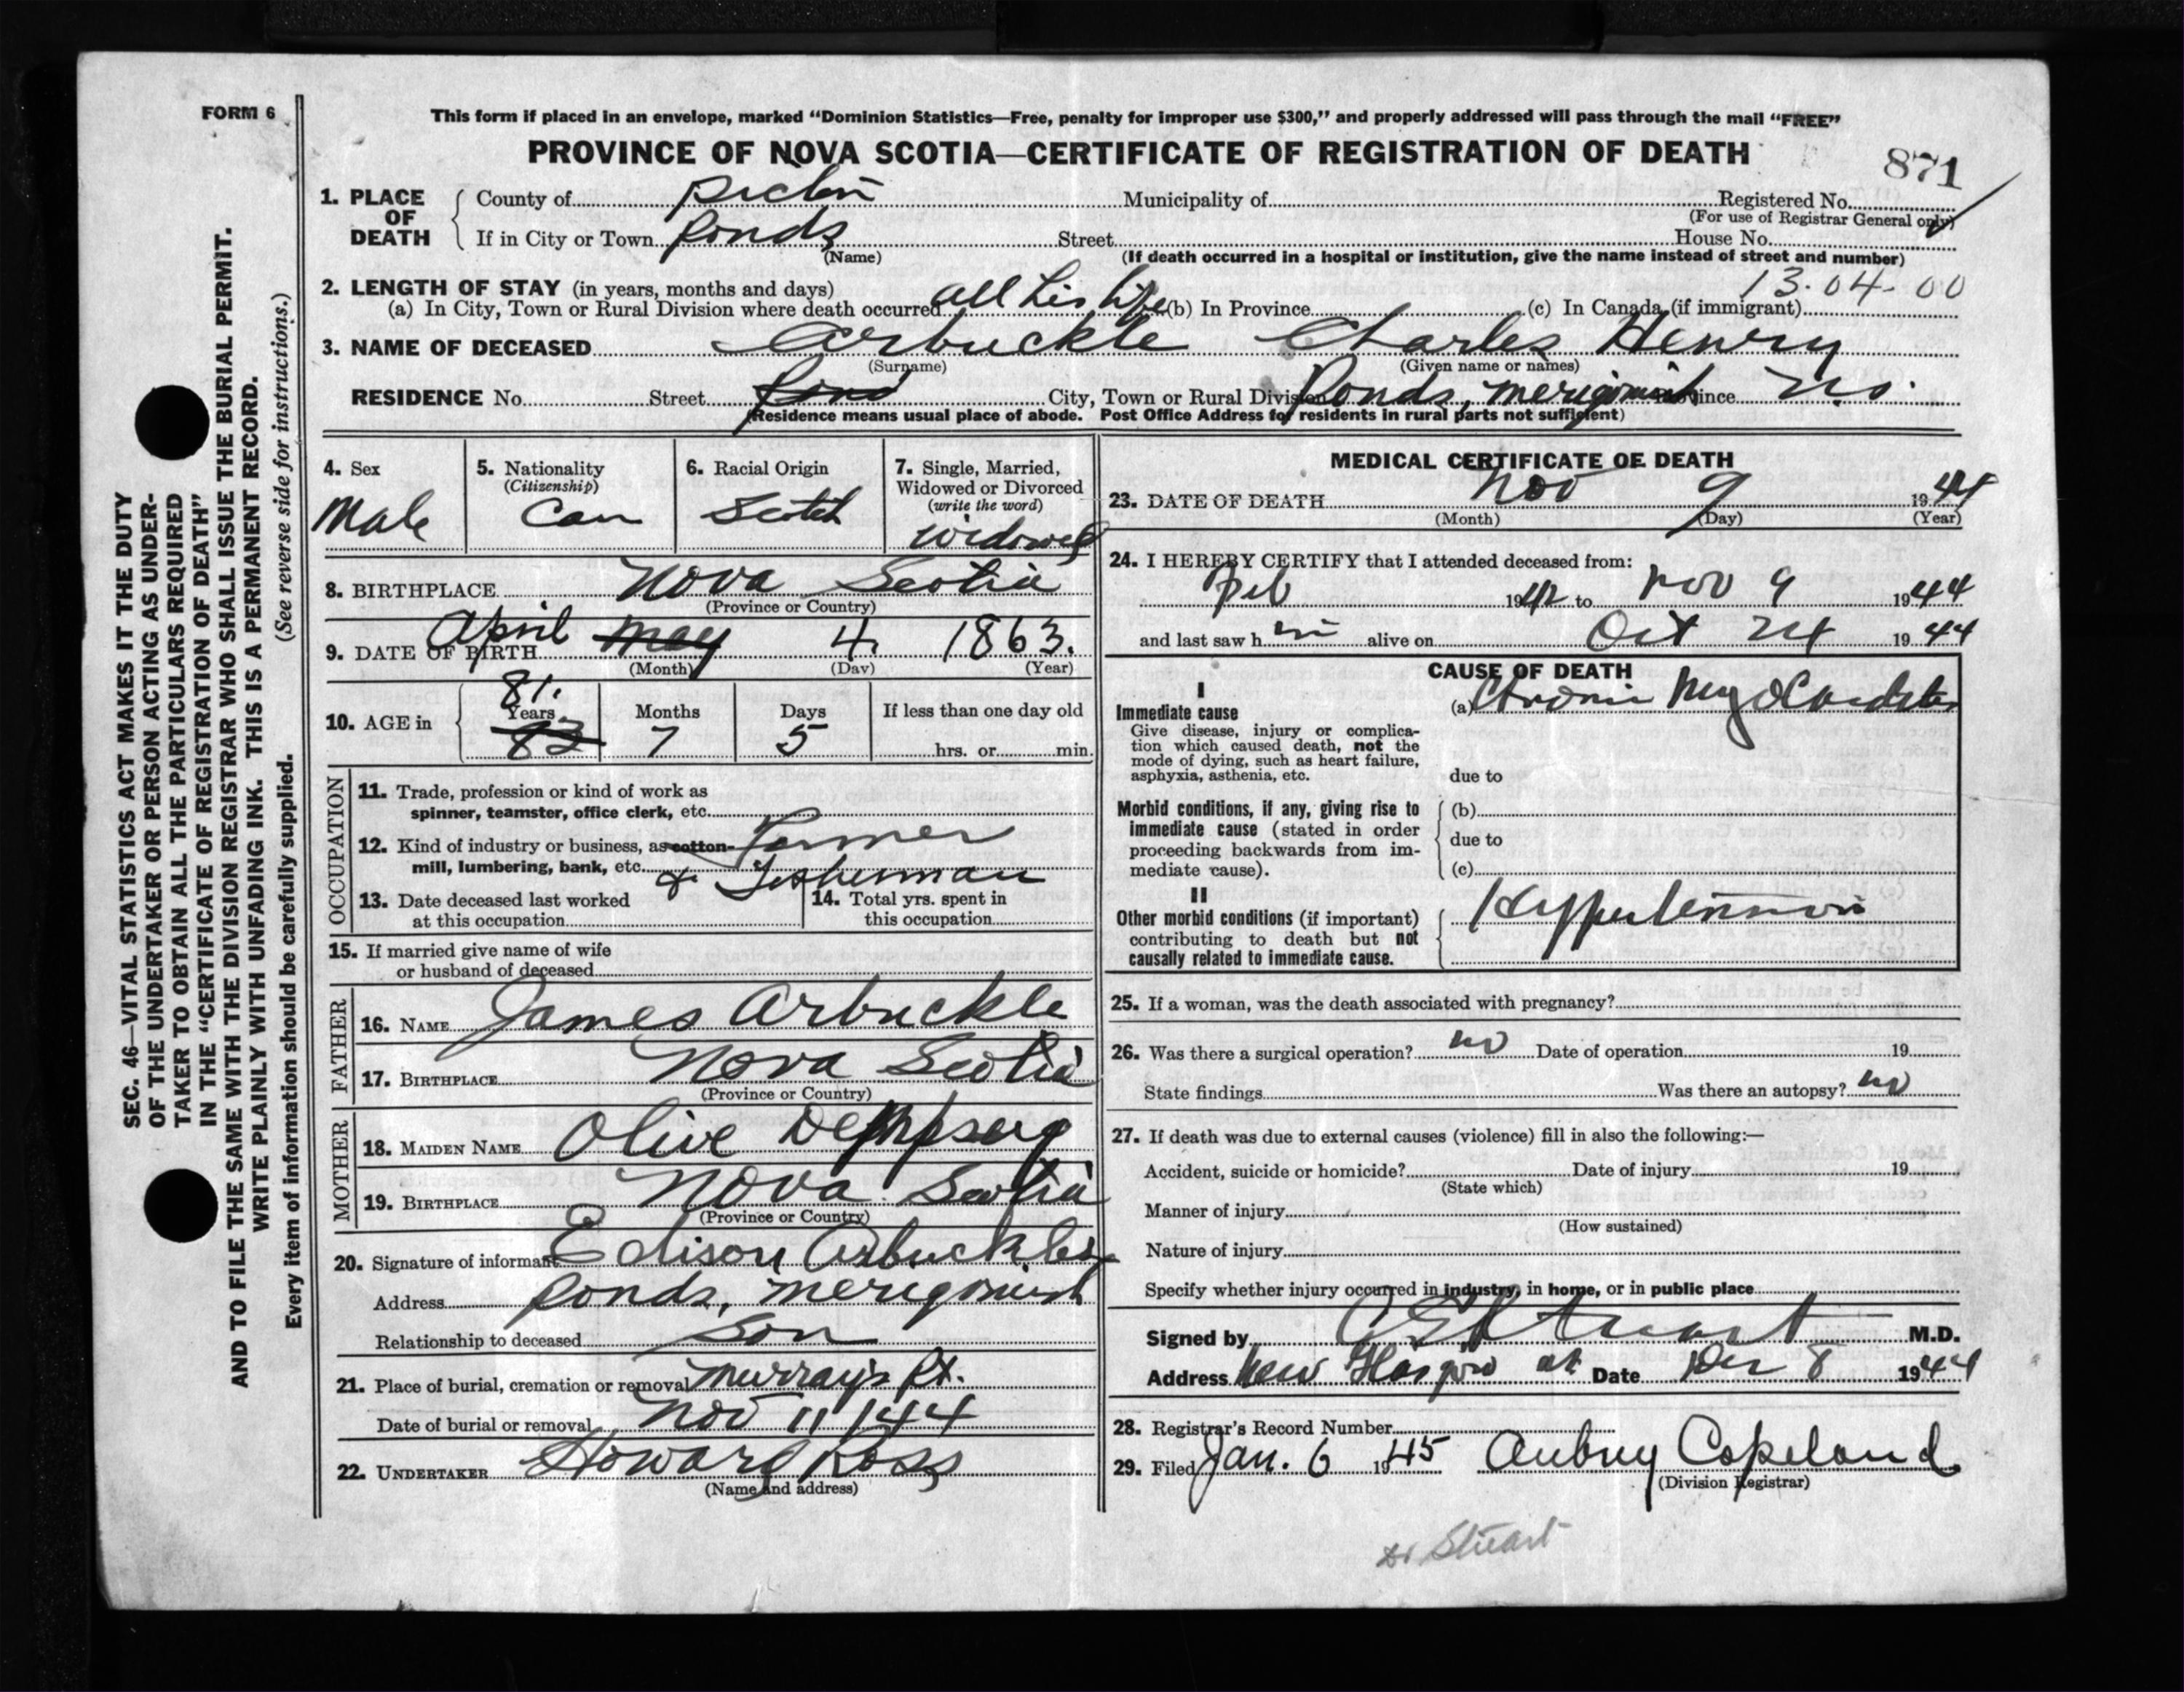 FORM 6
This form if placed in an envelope, marked "Dominion Statistics—Free, penalty for improper use $300," and properly addressed will pass through the mail "FREE"
PROVINCE OF NOVA SCOTIA—CERTIFICATE OF REGISTRATION OF DEATH
871
SEC. 46—VITAL STATISTICS ACT MAKES IT THE DUTY
OF THE UNDERTAKER OR PERSON ACTING AS UNDER-
TAKER TO OBTAIN ALL THE PARTICULARS REQUIRED
IN THE "CERTIFICATE OF REGISTRATION OF DEATH"
AND TO FILE THE SAME WITH THE DIVISION REGISTRAR WHO SHALL ISSUE THE BURIAL PERMIT.
WRITE PLAINLY WITH UNFADING INK. THIS IS A PERMANENT RECORD.
Every item of information should be carefully supplied. (See reverse side for instructions.)
1. PLACE OF DEATH
County of Pictou Municipality of Registered No.
(For use of Registrar General only)
If in City or Town Ponds Street House No.
(Name) (If death occurred in a hospital or institution, give the name instead of street and number)
13.04-00
2. LENGTH OF STAY (in years, months and days)
(a) In City, Town or Rural Division where death occurred all his life (b) In Province (c) In Canada (if immigrant)
3. NAME OF DECEASED Arbuckle Charles Henry
(Surname) (Given name or names)
RESIDENCE No. Street Pond City, Town or Rural Division Ponds, Merigomish Province N.S.
(Residence means usual place of abode. Post Office Address for residents in rural parts not sufficient)
4. Sex Male
5. Nationality (Citizenship) Can
6. Racial Origin Scotch
7. Single, Married, Widowed or Divorced (write the word) widowed
8. BIRTHPLACE Nova Scotia
(Province or Country)
9. DATE OF BIRTH April May 4. 1863.
(Month) (Day) (Year)
10. AGE in 81. Years 82 Months 7 Days 5 If less than one day old
hrs. or min.
OCCUPATION
11. Trade, profession or kind of work as
spinner, teamster, office clerk, etc.
12. Kind of industry or business, as cotton- Farmer
mill, lumbering, bank, etc. & Fisherman
13. Date deceased last worked at this occupation
14. Total yrs. spent in this occupation
15. If married give name of wife
or husband of deceased
FATHER
16. NAME James Arbuckle
17. BIRTHPLACE Nova Scotia
(Province or Country)
MOTHER
18. MAIDEN NAME Olive Dempsey
19. BIRTHPLACE Nova Scotia
(Province or Country)
20. Signature of informant Edison Arbuckle
Address Ponds, Merigomish
Relationship to deceased Son
21. Place of burial, cremation or removal Murray's Pt.
Date of burial or removal Nov 11/44
22. UNDERTAKER Howard Ross
(Name and address)
MEDICAL CERTIFICATE OF DEATH
23. DATE OF DEATH Nov 9 1944
(Month) (Day) (Year)
24. I HEREBY CERTIFY that I attended deceased from:
Feb 1942 to Nov 9 1944
and last saw h im alive on Oct 24 1944
CAUSE OF DEATH
I
Immediate cause (a) Chronic Myocarditis
Give disease, injury or complica-
tion which caused death, not the
mode of dying, such as heart failure,
asphyxia, asthenia, etc. due to
Morbid conditions, if any, giving rise to (b)
immediate cause (stated in order
proceeding backwards from im- due to
mediate cause). (c)
II
Other morbid conditions (if important) Hypertension
contributing to death but not
causally related to immediate cause.
25. If a woman, was the death associated with pregnancy?
26. Was there a surgical operation? no Date of operation 19
State findings Was there an autopsy? no
27. If death was due to external causes (violence) fill in also the following:—
Accident, suicide or homicide? Date of injury 19
(State which)
Manner of injury
(How sustained)
Nature of injury
Specify whether injury occurred in industry, in home, or in public place
Signed by Stuart M.D.
Address New Glasgow Date Dec 8 1944
28. Registrar's Record Number
29. Filed Jan. 6 1945 Aubrey Copeland
(Division Registrar)
Dr Stuart